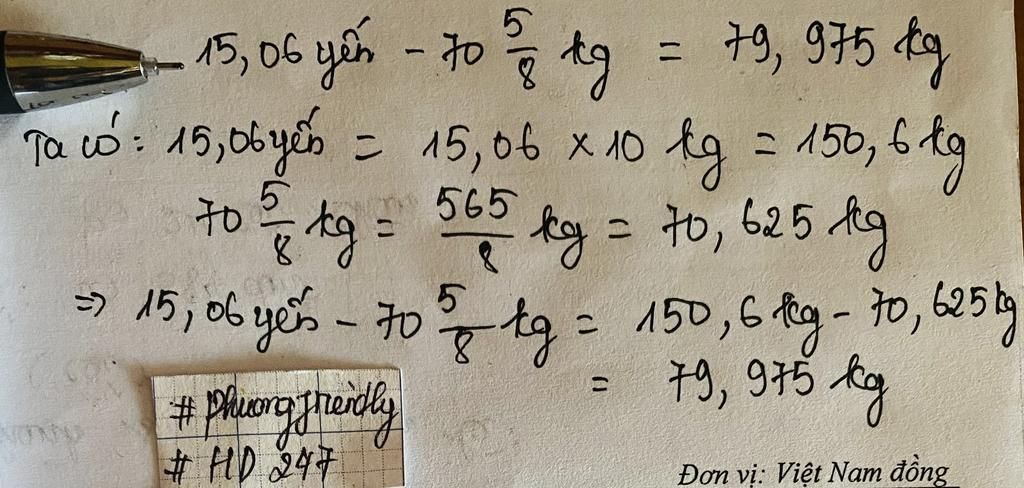 15,06 yến - 70 5/8 kg = 79,975 kg
Ta có: 15,06 yến = 15,06 x 10 kg = 150,6 kg
70 5/8 kg = 565/8 kg = 70,625 kg
=> 15,06 yến - 70 5/8 kg = 150,6 kg - 70,625 kg
= 79,975 kg
# phuongfriendly
# HD 247
Đơn vị: Việt Nam đồng